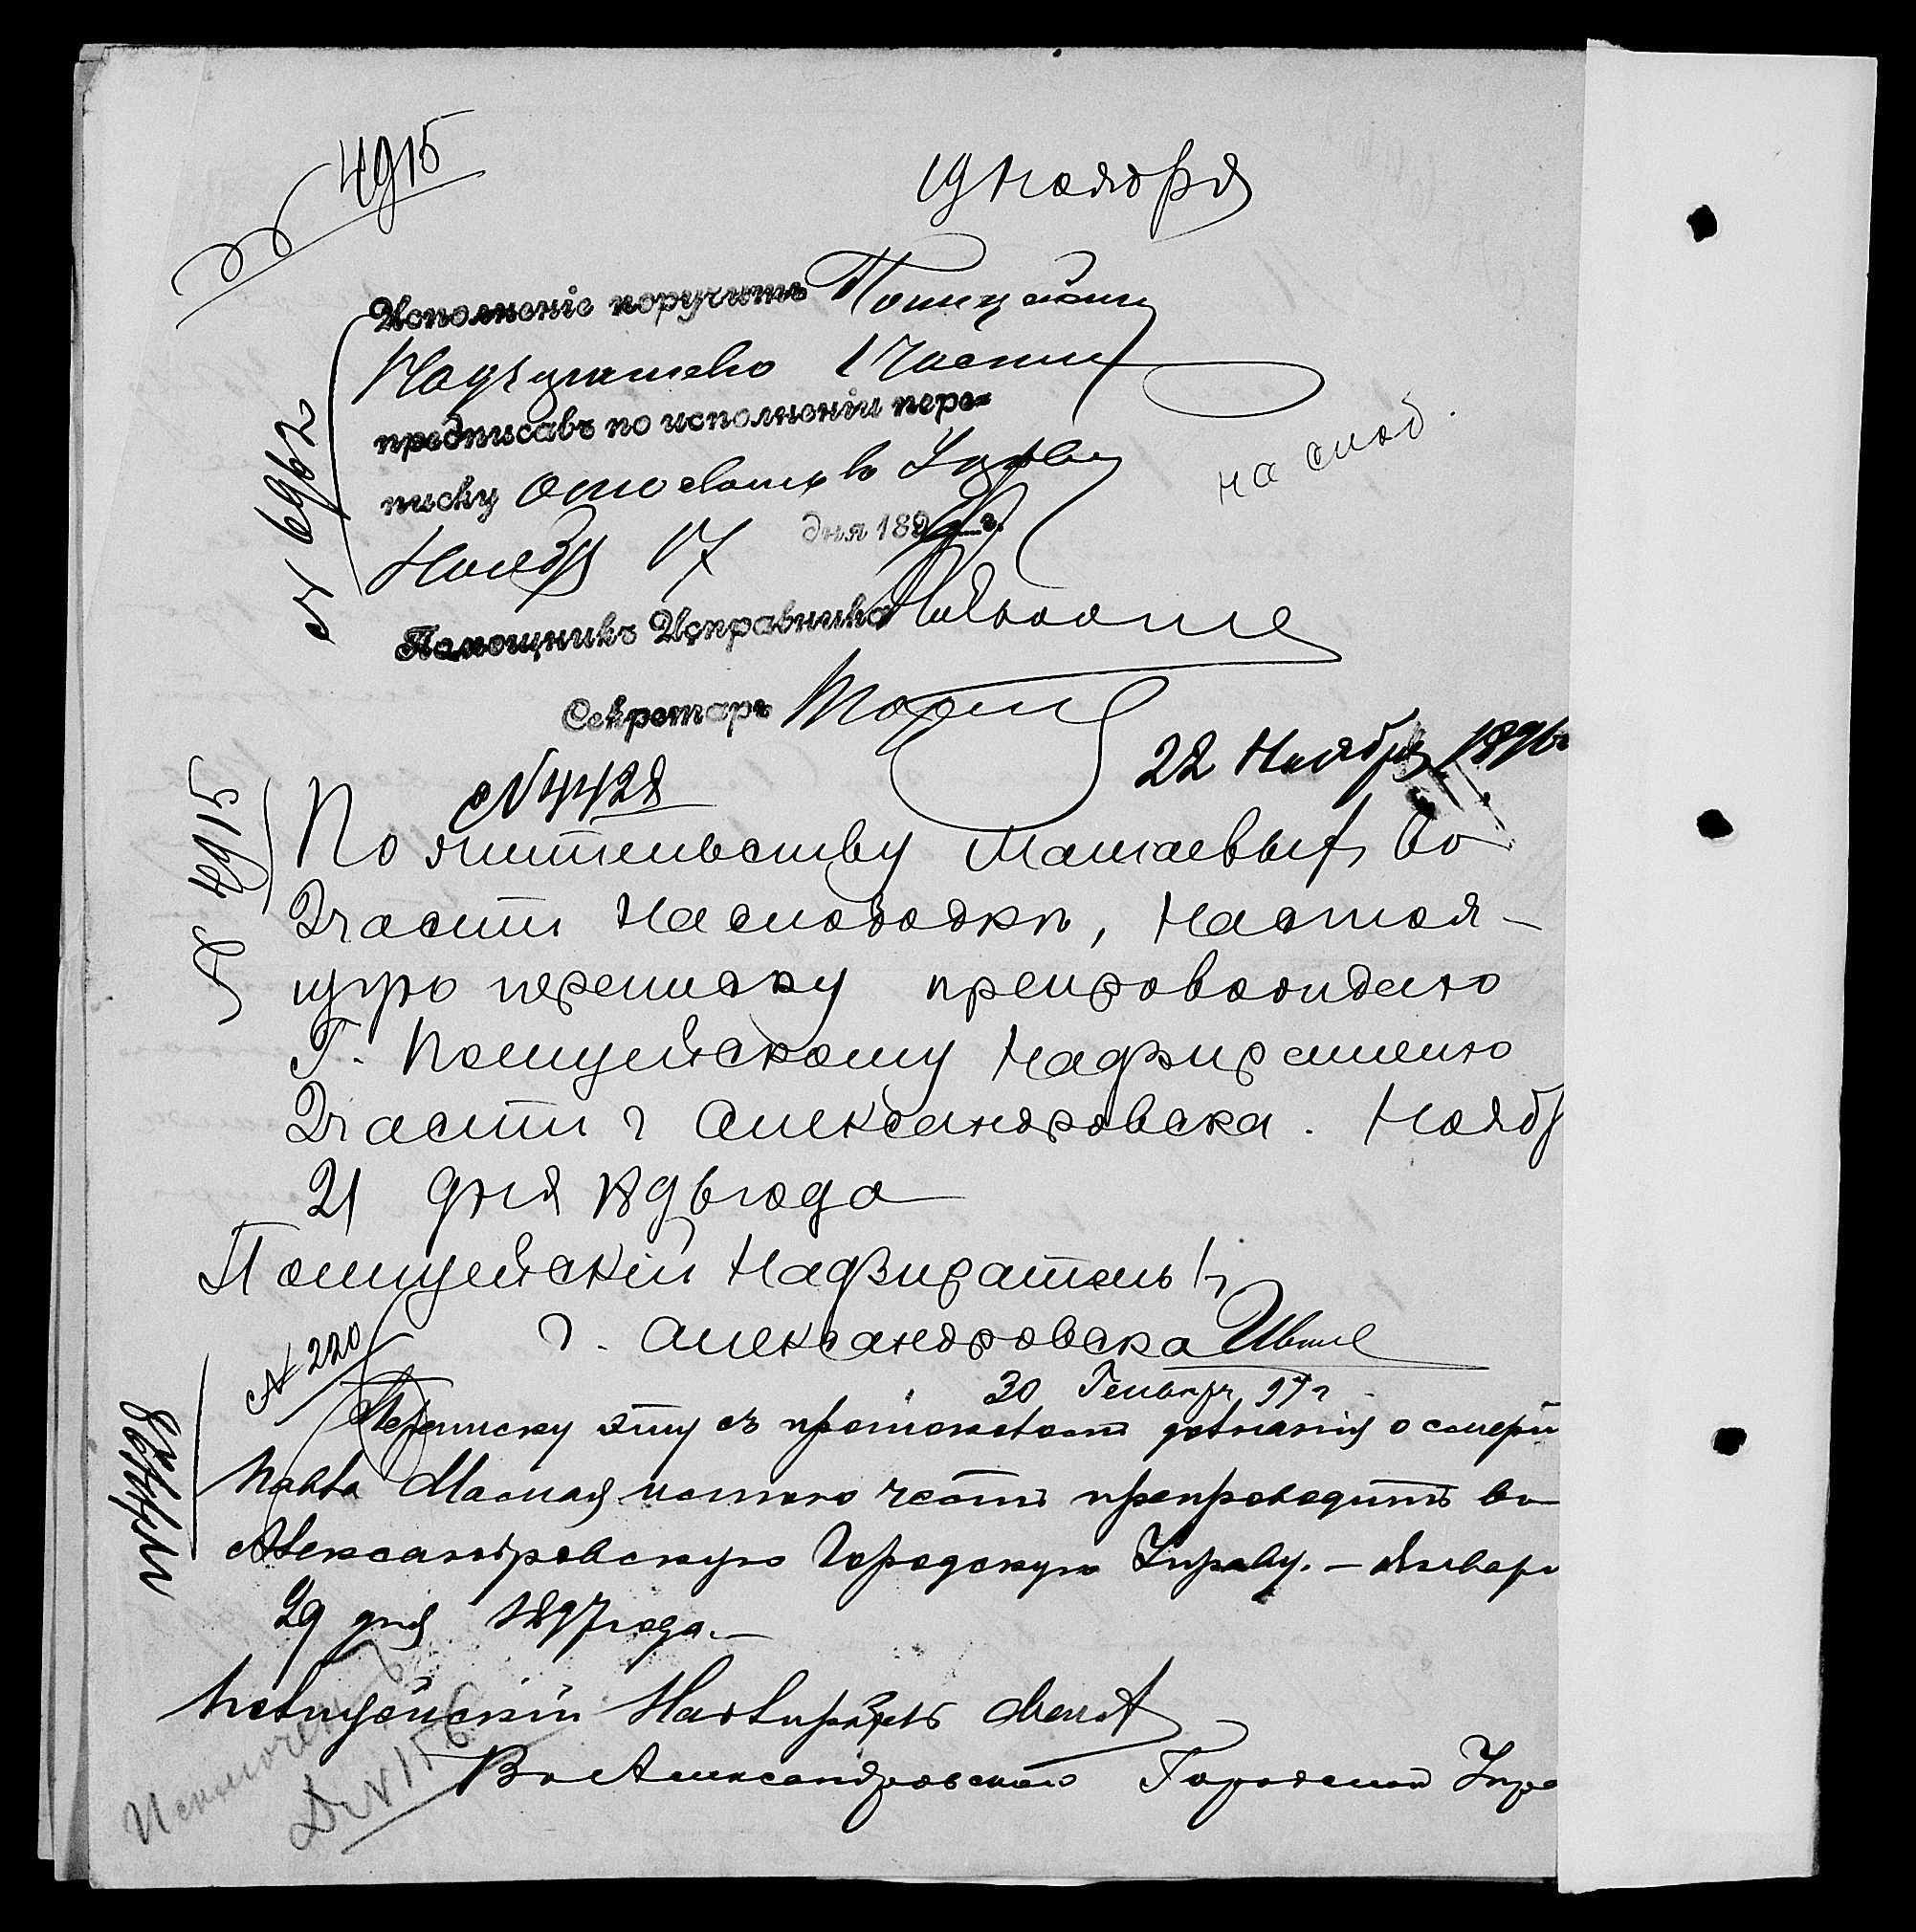 4915
19 ноября
Исполненіе поручить Полицейск
Надзирателю 1 части
предписавъ по исполненіи пере-
писку отослать въ Управу
на слоб.
Ноября 17 дня 189 г.
№ 6962
Помощникъ Исправника
Секретарь
№ 4428
22 Ноября 1896 г
№ 4915
По жительству Маталевыхъ во
2 части на слободкѣ, настоя-
щую переписку препровождаю
Г. Полицейскому Надзирателю
2 части г Александровска. Нояб
21 дня 1896 года
Полицейскій Надзиратель 1 ч
г. Александровска
№ 220
30 Генваря 97 г
Переписку эту съ протоколомъ дознанія о смерти
Павла честь препроводить въ
Александровскую Городскую Управу. — Января
29 дня 1897 года. —
Полицейскій Надзиратель
Въ Александровскую Городскую Упра
Исключен
Д № 156